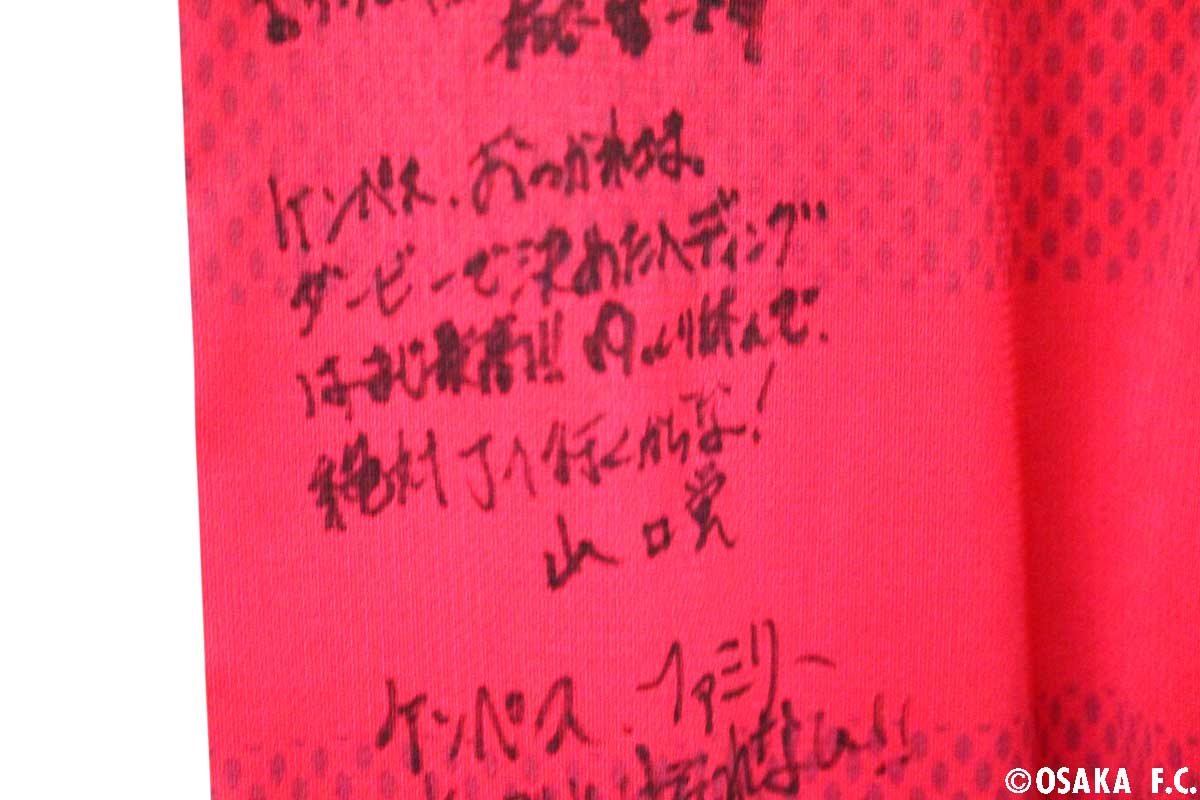 ケンペス、おつかれさま。
ダービーで決めたヘディング
はまじ最高!! ゆっくり休んで。
絶対 J1へ行くからな!
山口蛍
ケンペス、ファミリー
忘れない!!
©OSAKA F.C.